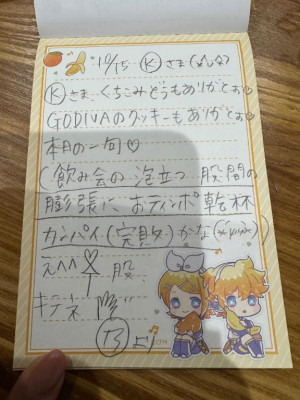 10/15 Ⓚさま
Ⓚさま くちこみどうもありがとぉ♡
GODIVAのクッキーもありがとぉ♡
本日の一句♡
(飲み会の 泡立つ 股間の
膨張に おティンポ 乾杯
カンパイ(完敗)かな
えへへ 股
キテネ
より